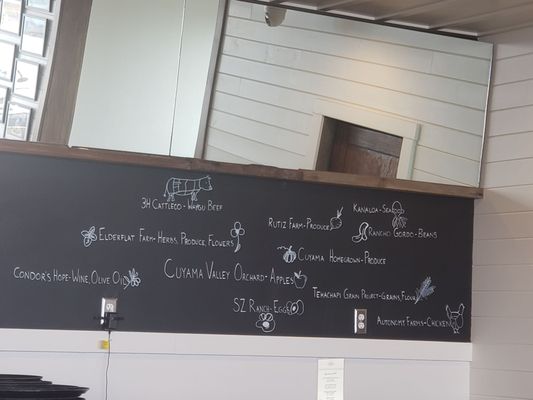 3H Cattleco-Wagyu Beef
Kanaloa-Seafood
Rutiz Farm-Produce
Rancho Gordo-Beans
Elderflat Farm-Herbs, Produce, Flowers
Cuyama Homegrown-Produce
Cuyama Valley Orchard-Apples
Condor's Hope-Wine, Olive Oil
Tehachapi Grain Project-Grains, Flour
SZ Ranch-Eggs
Autonomy Farms-Chicken